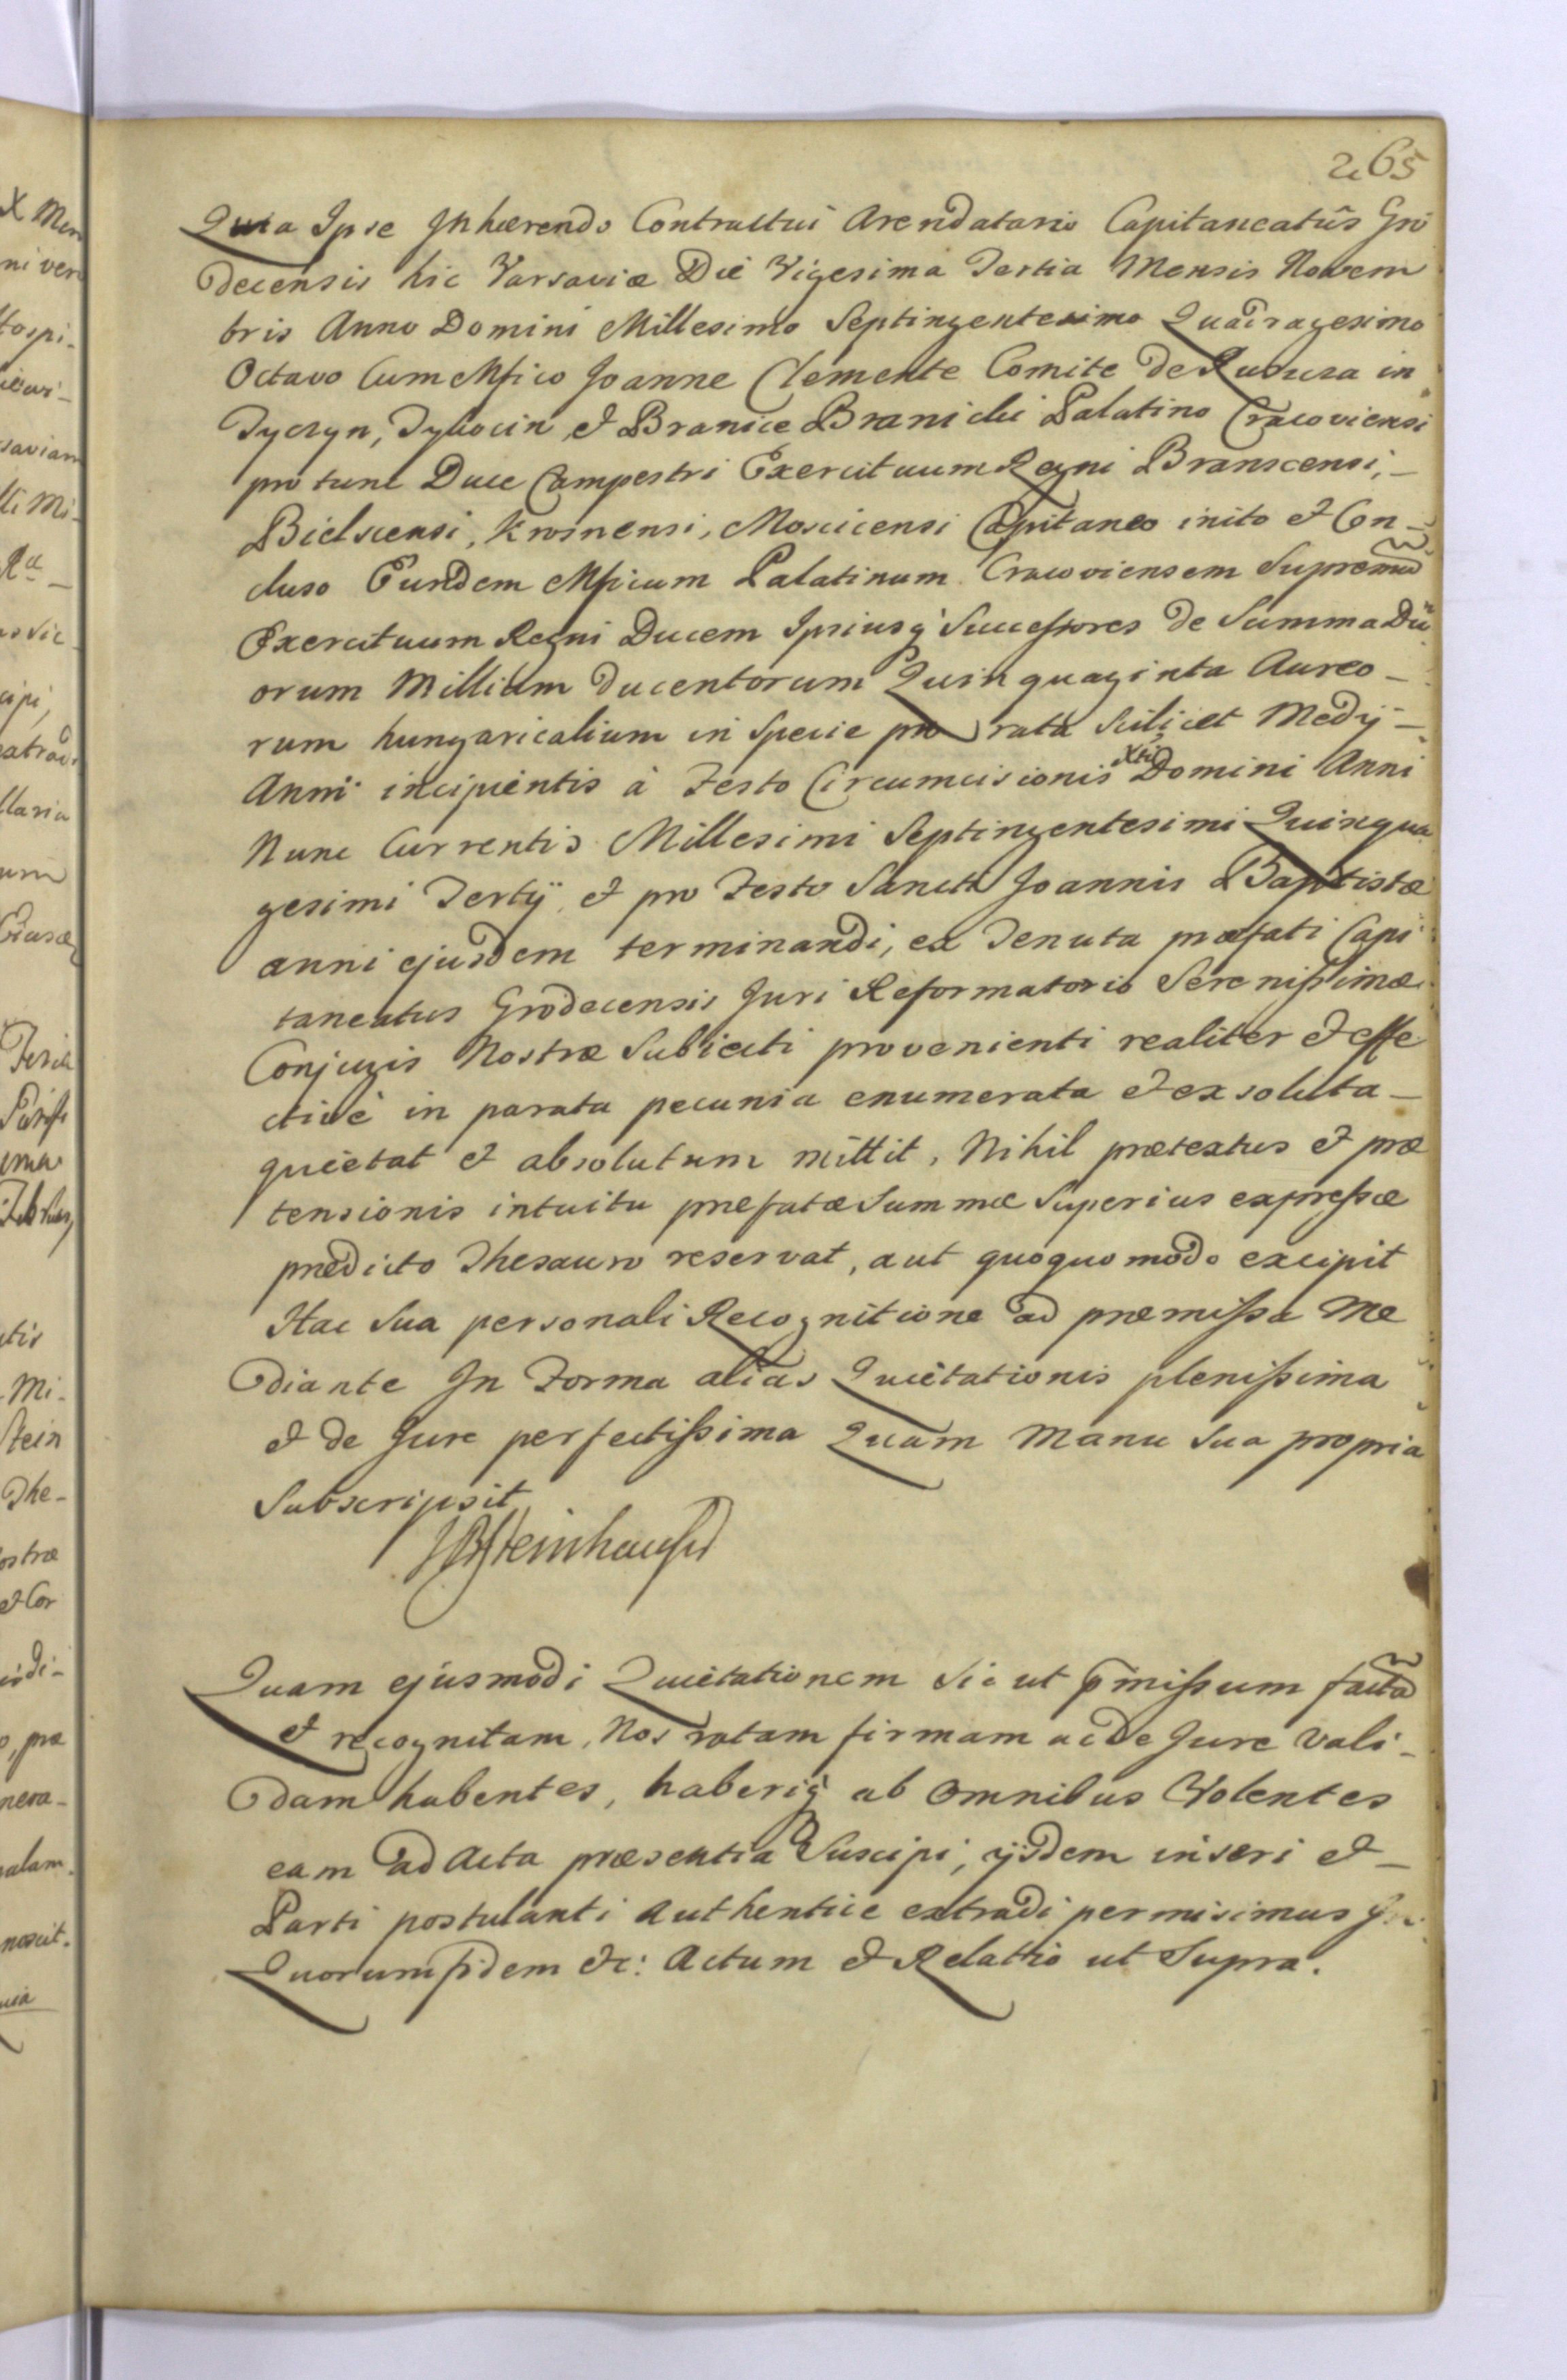 265
Quia Ipse Inhærendo Contractui Arendatario Capitaneatûs Gro
decensis hic Varsaviæ Die Vigesima Tertia Mensis Novem
bris Anno Domini Millesimo Septingentesimo Quadragesimo
Octavo Cum Mfico Joanne Clemente Comite De Ruszcza in
Tyczyn, Tykocin, et Branice Branicki Palatino Cracoviensi
pro tunc Duce Campestri Exercituum Regni Branscensi,
Bielscensi, Krosnensi, Moscicensi Capitaneo inito et Con-
cluso Eundem Mficum Palatinum Cracoviensem Supremũ
Exercituum Regni Ducem Ipsiusq̀ Successores de Summa Du
orum Millium Ducentorum Quinquaginta Aureo-
rum hungaricalium in Specie pro rata Scilicet Medij-
Anni incipientis à Festo Circumcisionis Xti Domini Anni
Nunc Currentis Millesimi Septingentesimi Quinqua
gesimi Tertij, et pro Festo Sancti Joannis Baptistæ
anni ejusdem terminandi, ex Tenuta præfati Capi
taneatus Grodecensis Juri Reformatorio Serenissimæ
Conjugis Nostræ Subiecti provenienti realiter et effe
ctivè in parata pecunia enumerata et exsoluta-
quietat et absolutum mittit, Nihil prætextus et præ
tensionis intuitu præfatæ Summæ Superius expressæ
prædicto Thesauro reservat, aut quoquo modo excipit
Hac Sua personali Recognitione ad præmissa Me
diante In Forma alias Quietationis plenissima
et de Jure perfectissima Quam Manu Sua propria
Subscripsit
JBSteinhauser
Quam ejusmodi Quietationem Sic ut p̄missum factã
et recognitam, Nos ratam firmam ac De Jure Vali-
dam habentes, haberiq̀ ab omnibus Volentes
eam ad Acta præsentia Suscipi, ijsdem inseri et-
Parti postulanti Authentice extradi permisimus In
Quorum fidem etc: Actum et Relatio ut Supra.